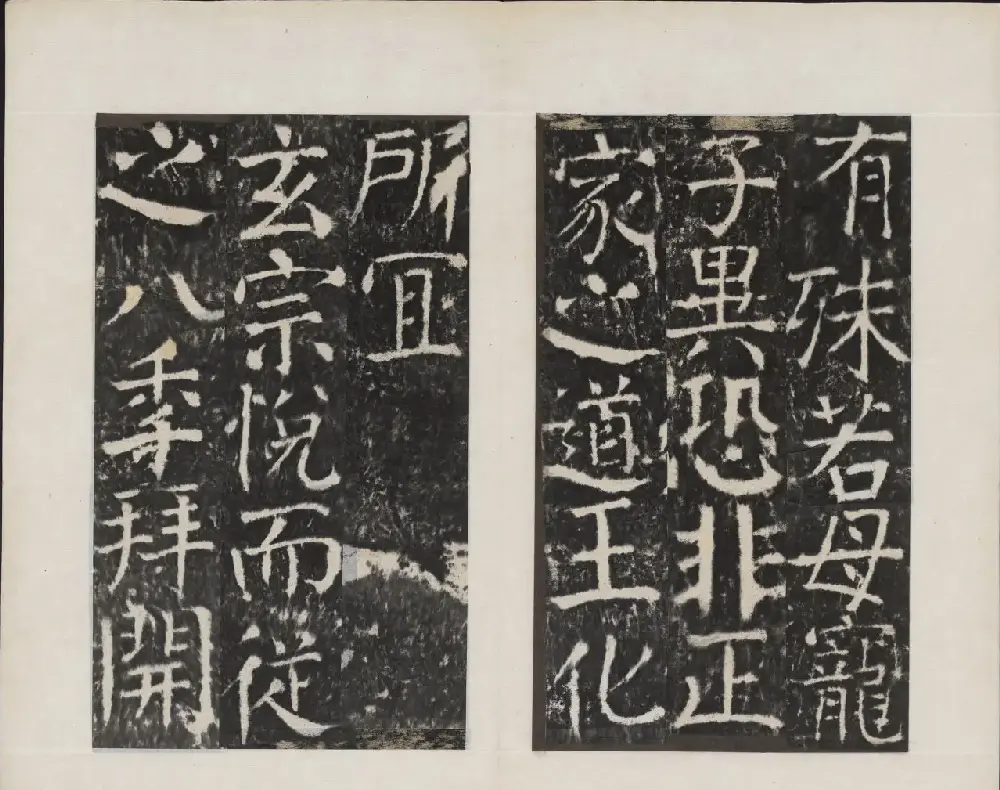 有殊若母寵
子異恐非正
家之道王化
所宜
玄宗悅而從
之八秊拜開